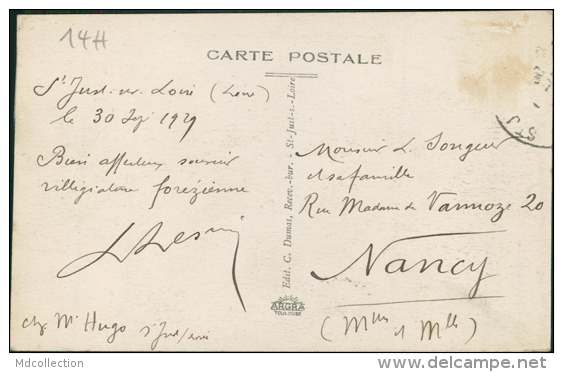 14H
CARTE POSTALE
St Just-sur Loire (Loire)
le 30 1929
Bien affectueux souvenir
villégiature forézienne
chez Mr Hugo St Just/Loire
Edit. C. Dumas, Recev.-bur. - St-Just-s.-Loire
ARGRA
TOULOUSE
Monsieur L. Songeur
et sa famille
Rue Madame de Vannoze 20
Nancy
(Mme et Mlle)
ST J
Mdcollection
delcampe.net